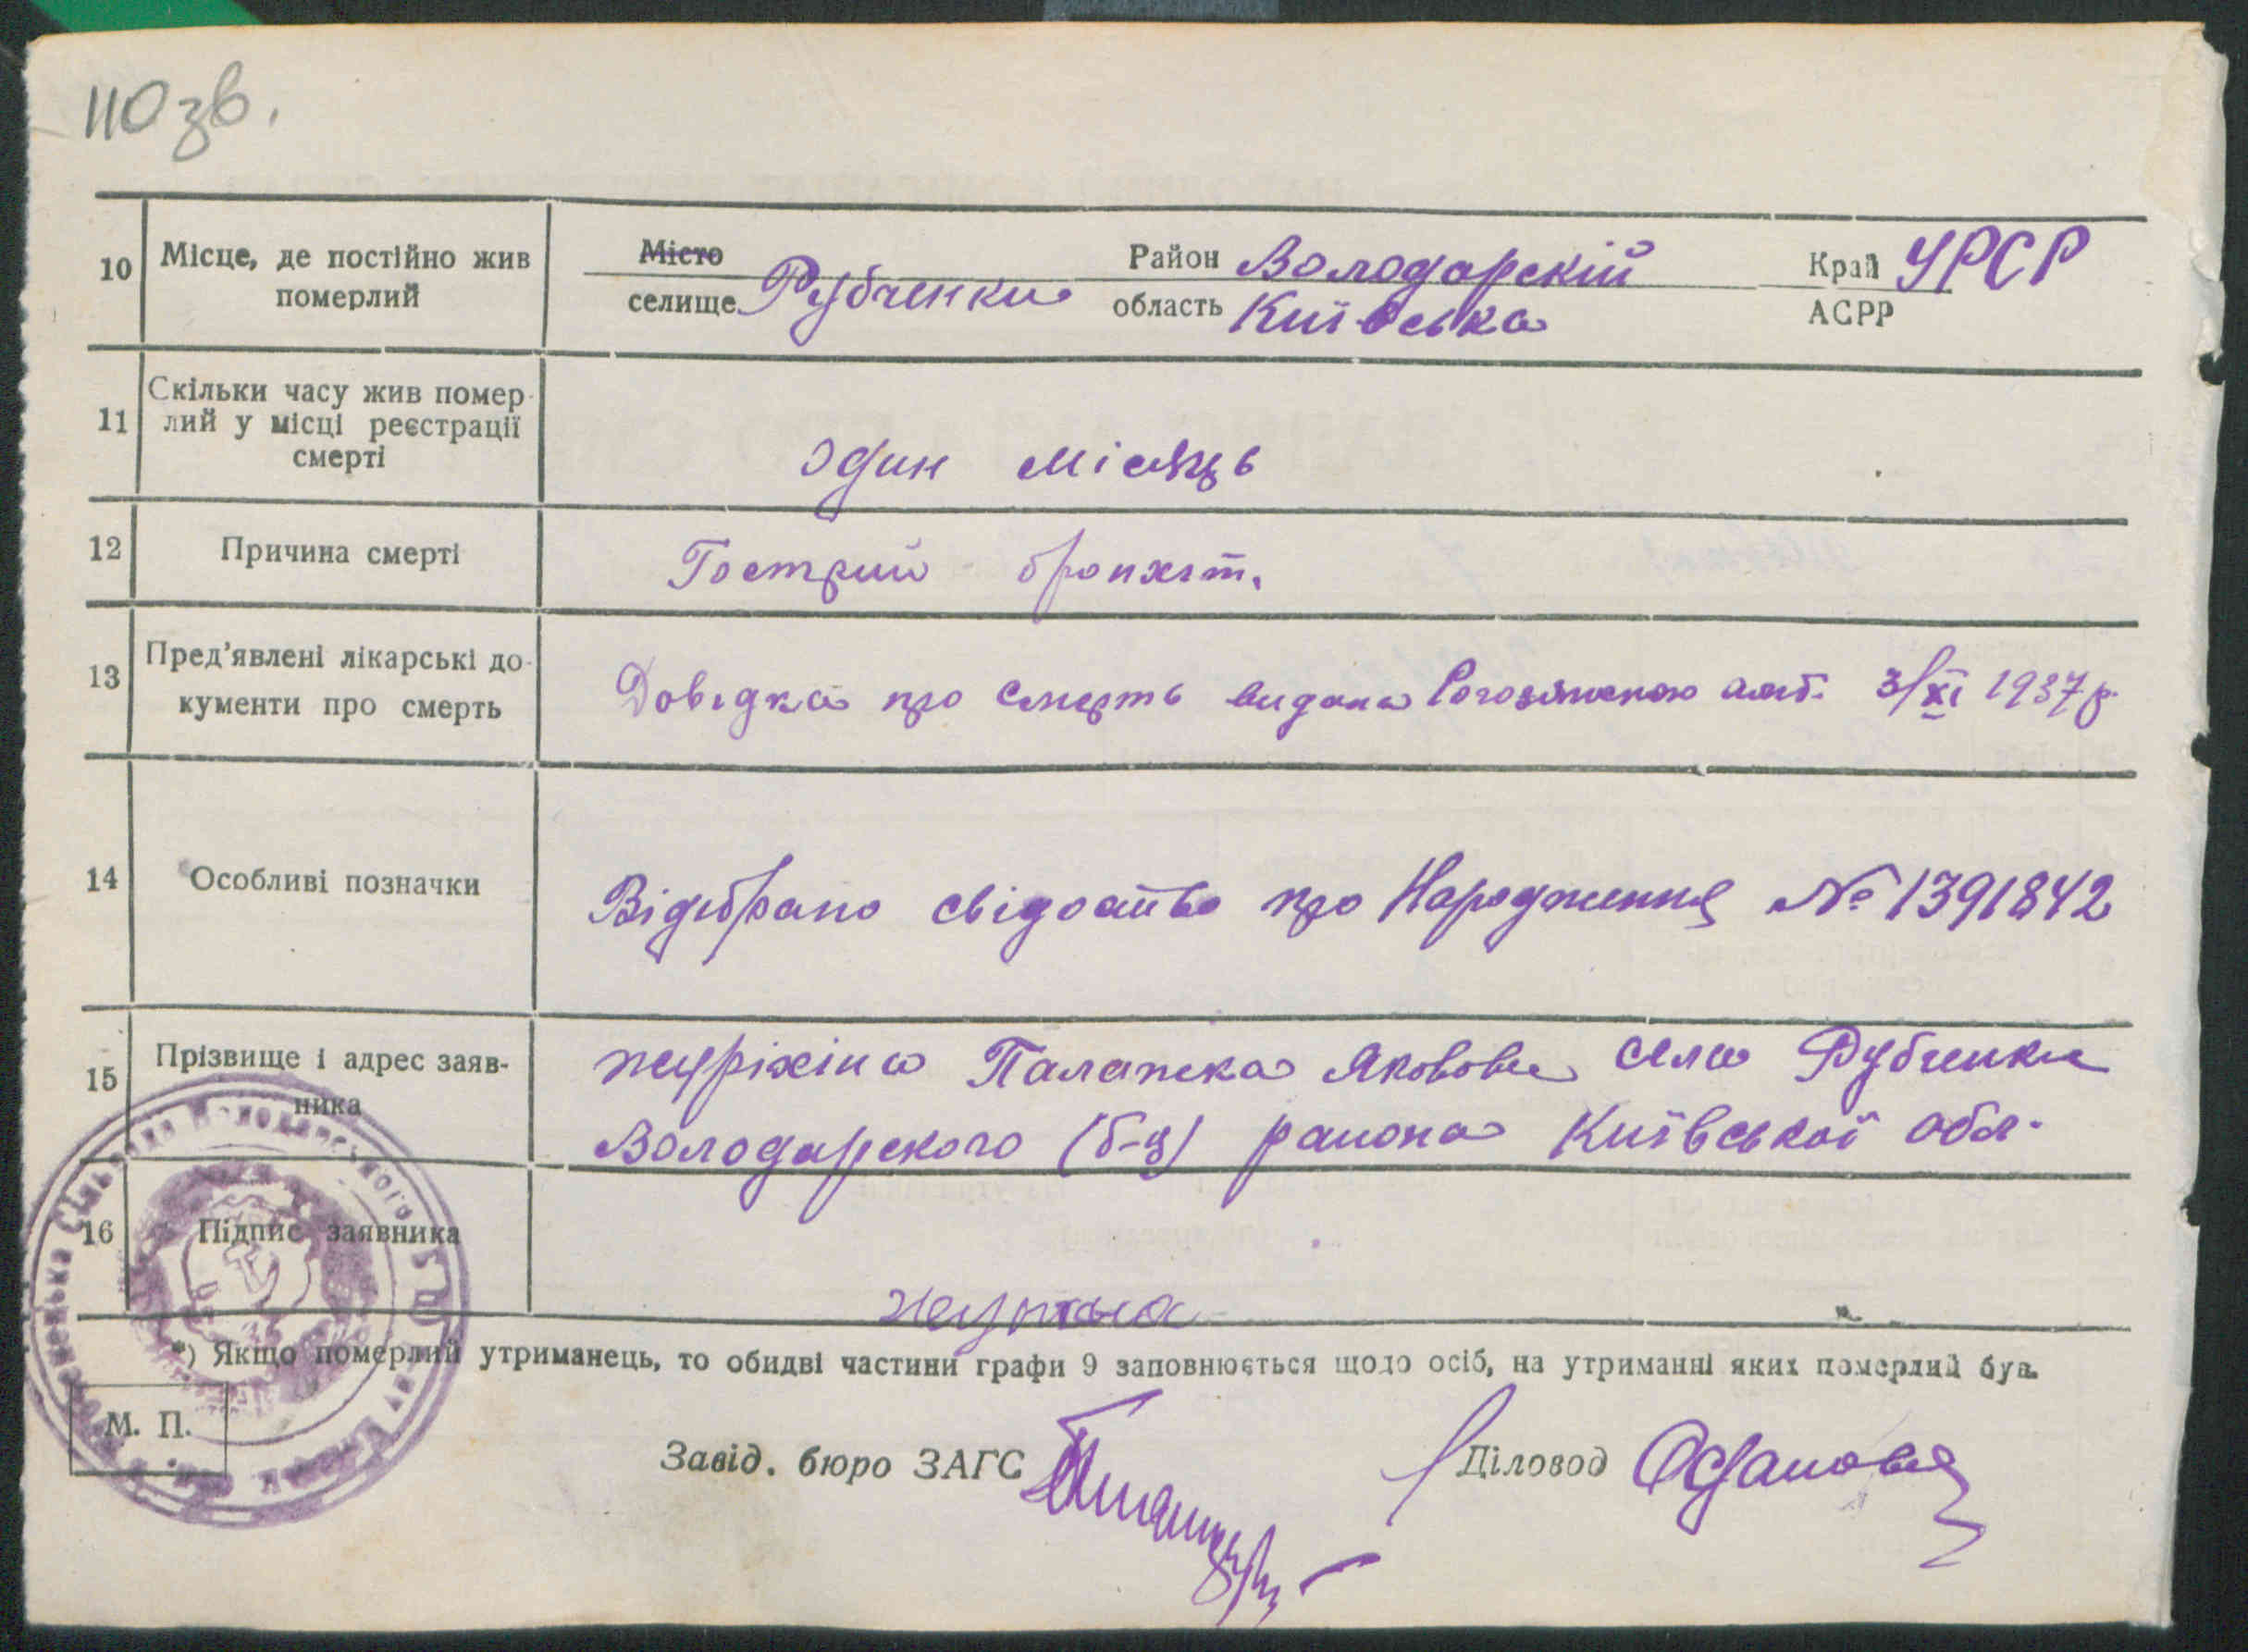 110 зв.
10 Місце, де постійно жив померлий
Місто
селище Рубченки
Район Володарскій
область Київська
Край УРСР
АСРР
11 Скільки часу жив помер-
лий у місці реєстрації
смерті
один місяць
12 Причина смерті
Гострий бронхіт.
13 Пред'явлені лікарські до-
кументи про смерть
Довідка про смерть видана амб. 3/XI 1937 р.
14 Особливі позначки
Відібрано свідоцтво про Народження № 1391842
15 Прізвище і адрес заяв-
ника
Палажка Якововна села Рубченки
Володарского (б-ц) района Київської обл.
16 Підпис заявника
*) Якщо померлий утриманець, то обидві частини графи 9 заповнюється щодо осіб, на утриманні яких померлий був.
М. П.
Завід. бюро ЗАГС
Діловод